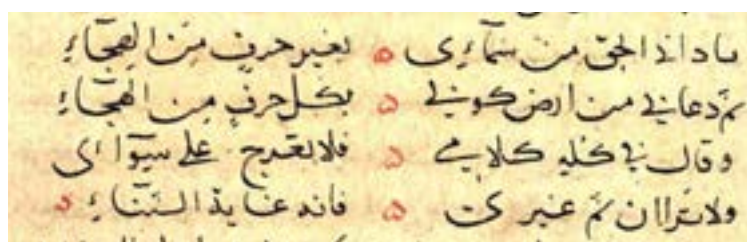 ناداني الحق من سمائي ه بغير حرف من الهجاء
ثم دعاني من ارض كوني ه بكل حرف من الهجاء
وقال لي كله كلامي ه فلا تعرج على سوائي
ولا ترا ان ثم غيري ه فانه غاية الثناء ه